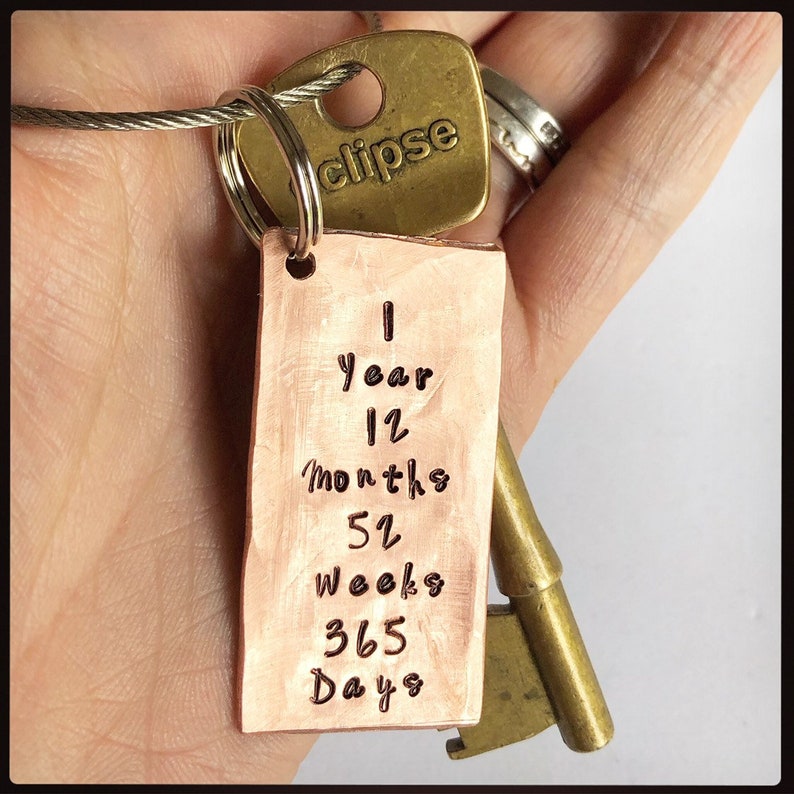 eclipse
1
Year
12
Months
52
Weeks
365
Days